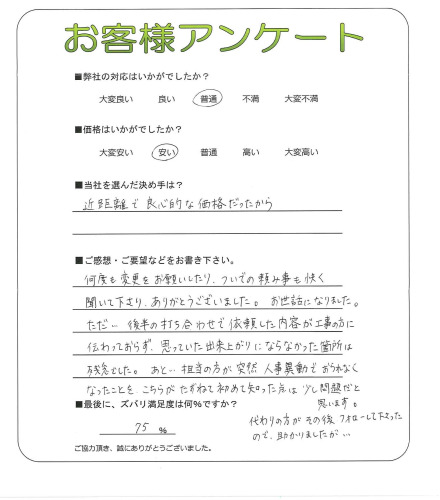 お客様アンケート
■弊社の対応はいかがでしたか?
大変良い 良い 普通 不満 大変不満
■価格はいかがでしたか?
大変安い 安い 普通 高い 大変高い
■当社を選んだ決め手は?
近距離で良心的な価格だったから
■ご感想・ご要望などをお書き下さい。
何度も変更をお願いしたり、ついでの頼み事も快く
聞いて下さり、ありがとうございました。お世話になりました。
ただ… 後半の打ち合わせで依頼した内容が工事の方に
伝わっておらず、思っていた出来上がりにならなかった箇所は
残念でした。あと… 担当の方が突然人事異動でおられなく
なったことを、こちらがたずねて初めて知った点は少し問題だと
思います。
■最後に、ズバリ満足度は何%ですか?
75 %
代わりの方がその後フォローして下さった
ので、助かりましたが…
ご協力頂き、誠にありがとうございました。